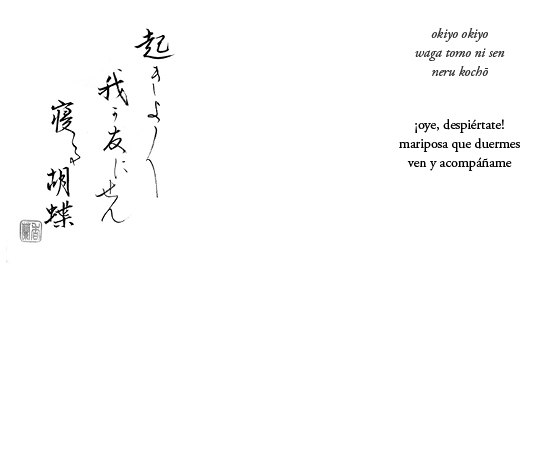 起きよ〳〵
我か友にせん
寝る胡蝶
okiyo okiyo
waga tomo ni sen
neru kochō
¡oye, despiértate!
mariposa que duermes
ven y acompáñame